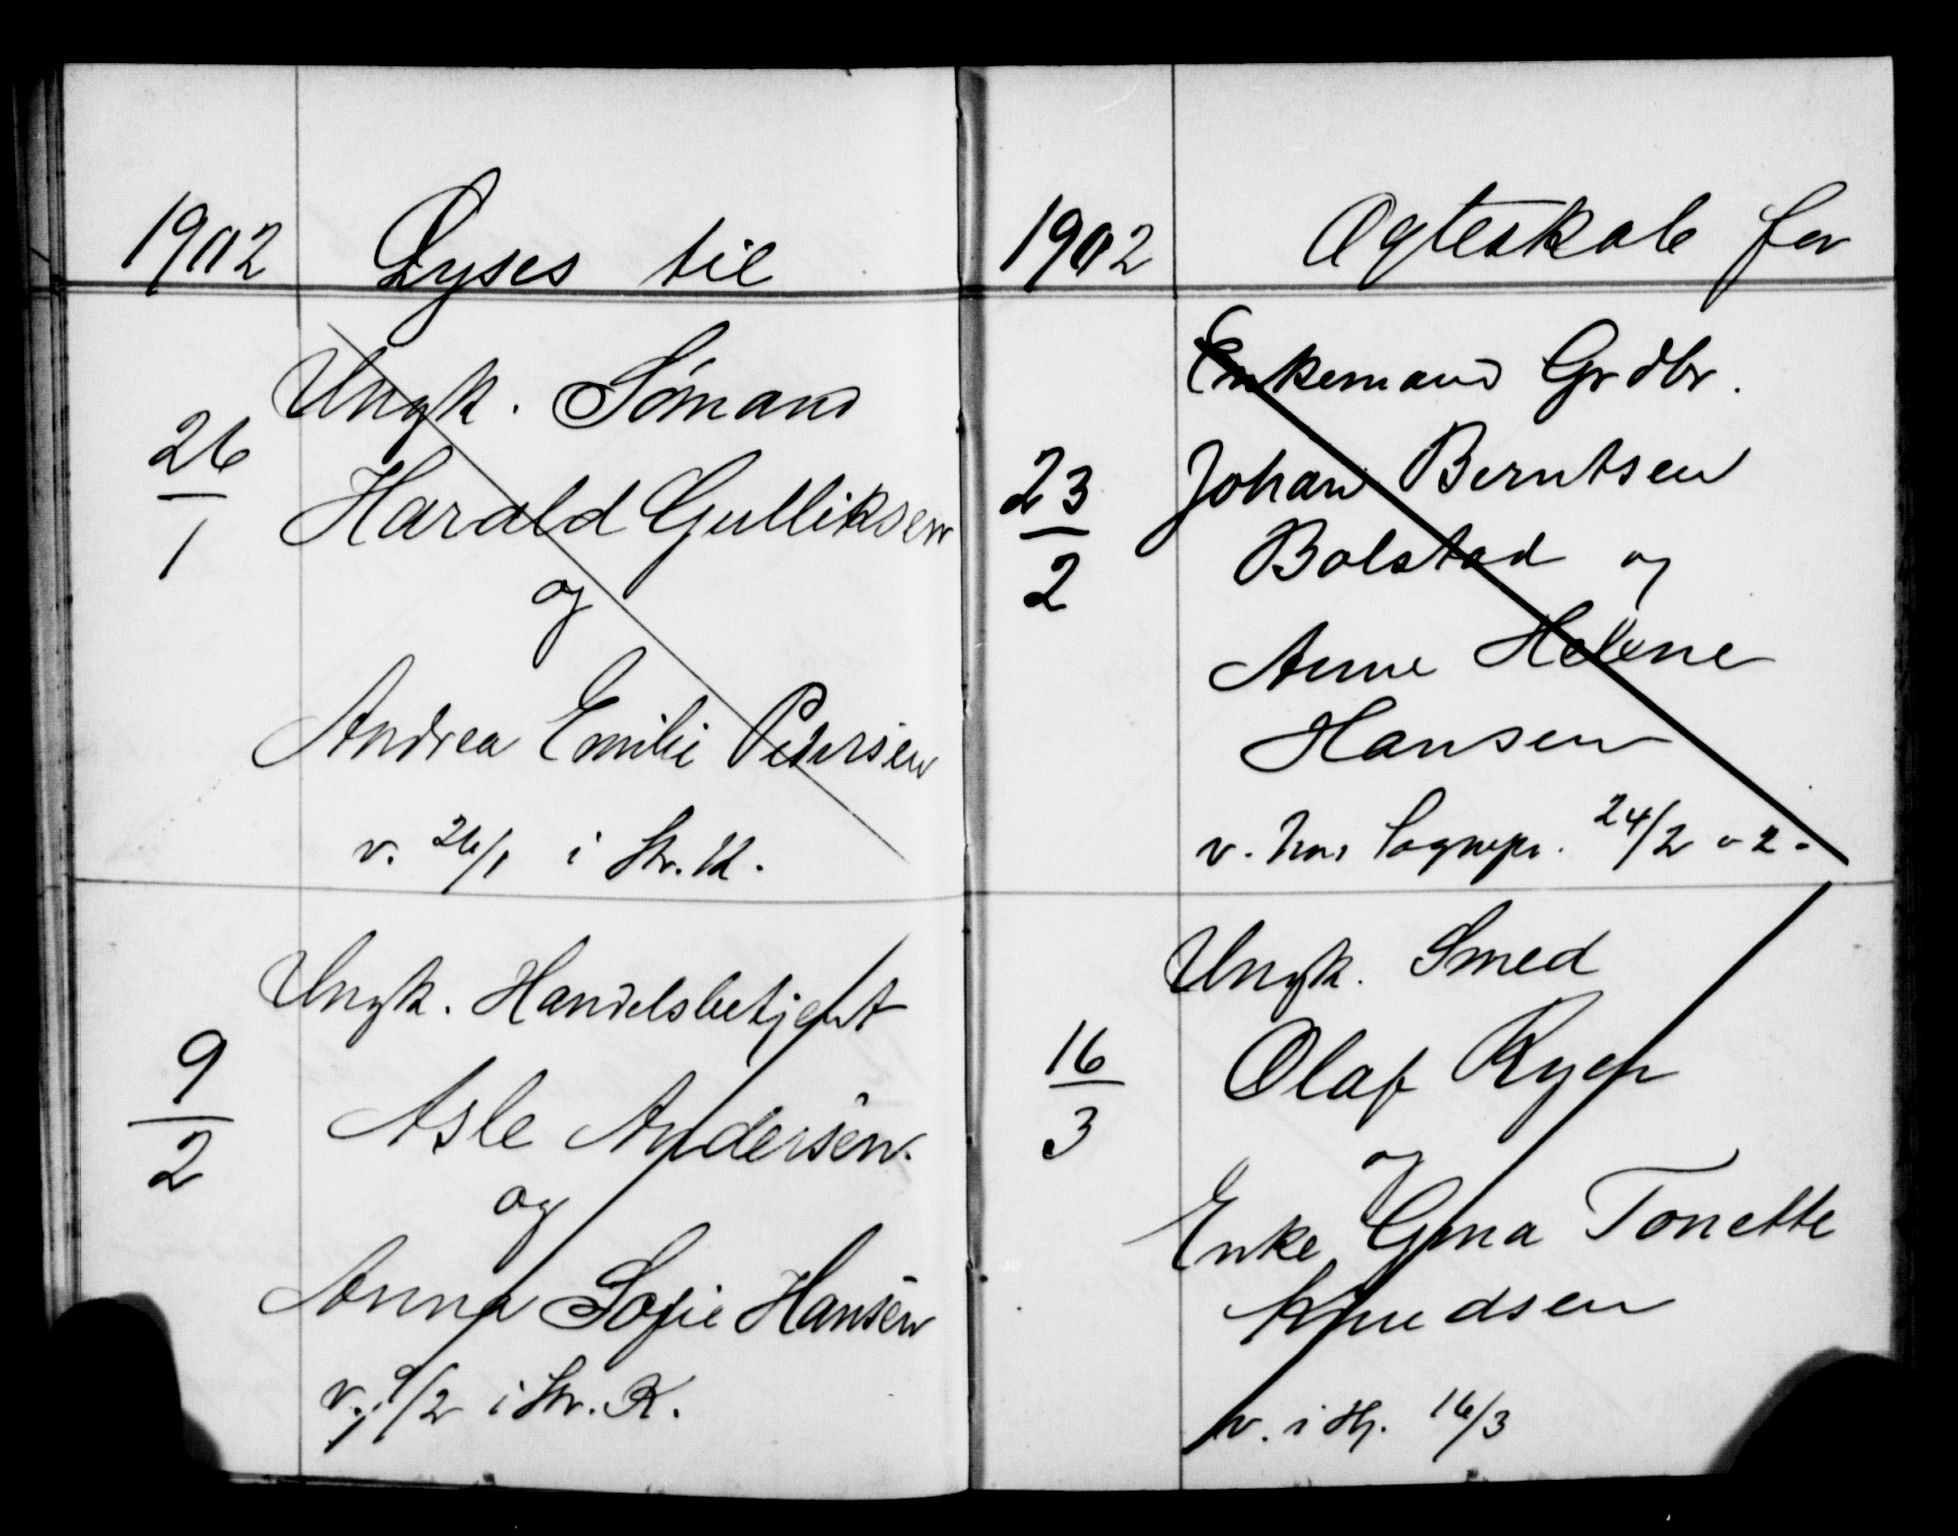 1902 Lyses til
26/1
Ungk. Sømand
Harald Gulliksen
og
Andrea Emilie Pedersen
v. 26/1 i Str. K.
9/2
Ungk. Handelsbetjent
Asle Andersen.
og
Anna Sofie Hansen
v. 9/2 i Str. K.
1902 Ægteskab for
23/2
Enkemand Grdbr.
Johan Berntsen
Bolstad og
Anne Helene
Hansen
v. hos Sognepr. 24/2 02.
16/3
Ungk. Smed
Olaf Ryen
og
Enke Gina Tonette
Knudsen
v. i 16/3